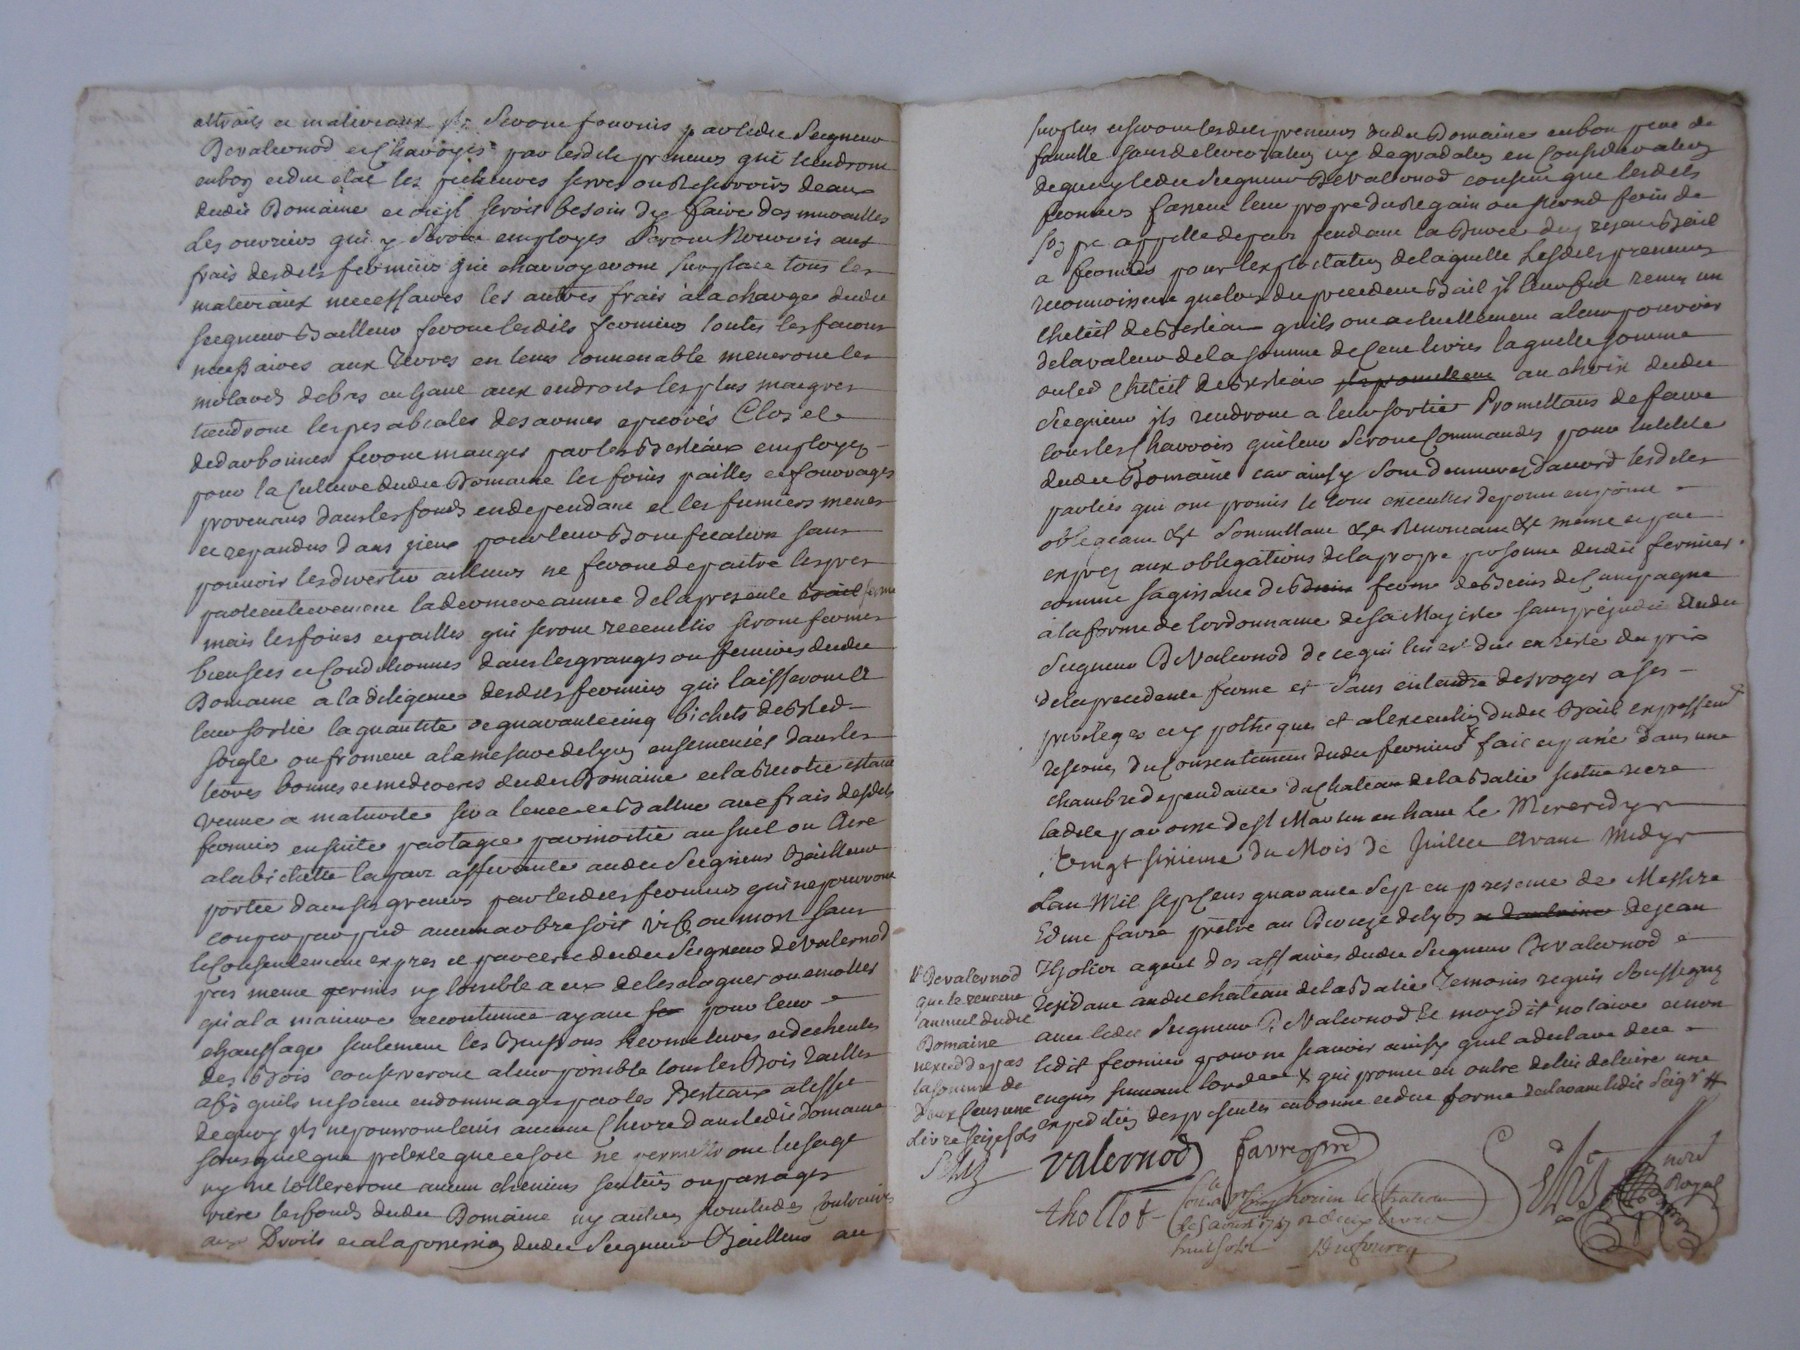 attraits et materiaux seront fournis par ledit Seigneur
De valernod et Charoyés par lesdits preneurs qui tiendront
en bon et due etat les serves ou Reservoirs deaux
dudit Domaine et sil seroit besoin dy faire des murailles
Les ouvriers qui y seront employes seront Nourris aux
frais desdits fermiers qui charroyeront sur place tous les
materiaux necessaires les autres frais à la charge dudit
seigneur Bailleur feront lesdits fermiers toutes les facons
necessaires aux Terres en tems convenable meneront les
de bas en haut aux endroits les plus maigres
tiendront les pres
feront manger par les Bestiaux employez
pour la Culture dudit Domaine les foins pailles et fourrages
provenans dans les fonds en dependant et les fumiers menes
et repandus dans iceux pour leur Bonification sans
pouvoir les divertir ailleurs ne feront depaitre les pres
la derniere année de la presente ferme
mais les foins et pailles qui seront receuillis seront fermés
bien secs et Conditionnés dans les granges ou fenieres dudit
Domaine a la diligence desdits fermiers qui laisseront à
leur sortie la quantité de quarante cinq bichets de Bled
seigle ou froment a la mesure de lyon ensemencés dans les
terres bonnes et mediocres dudit Domaine et la Recolte estant
venue a maturité sera levée et Battue aux frais desdits
fermiers ensuite partagée par moitié au sueil ou Aire
a la bichette la part afferante audit Seigneur Bailleur
portée dans ses greniers par lesdits fermiers qui ne pourront
couper par pied aucun arbre soit vif ou mort sans
le Consentement expres et par ecrit dudit Seigneur de Valernod
pas meme permis ny loisible a eux de les elaguer ou emotter
qu'a la maniere accoutumée ayant pour leur
chauffage seulement les Buissons
des Bois conserveront a leur possible tous les Bois Tailles
afin quils ne soient endommages par les Bestiaux a l'effet
de quoy ils ne pourront tenir aucune Chevre dans ledit domaine
sous quelque pretexte que ce soit ne permettront lusage
ny ne tollereront aucun chemins sentiers ou passages
riere les fonds dudit Domaine ny autres servitudes Contraires
aux Droits et a la possession dudit Seigneur Bailleur au
surplus useront lesdits preneurs dudit Domaine en bon pere de
famille sans deterioration ny degradation en Consideration
de quoy ledit Seigneur De Valernod consent que lesdits
fermiers fassent leur propre du Regain ou second foin de
pendant la Durée du present Bail
a ferme pour lexploitation de laquelle Lesdits preneurs
reconnoissent que lors du precedent Bail il leur fut remis un
Cheteil de Bestiaux quils ont actuellement a leur pouvoir
de la valeur de la somme de Cent livres laquelle somme
ou led Cheteil de Bestiaux au choix dudit
Seigneur ils rendront a leur sortie Promettans de faire
tous les Charrois qui leur seront Commandés pour lutilité
dudit Domaine car ainsy sont demeurez d'accord lesdites
parties qui ont promis le tout executer de point en point
obligeant &a Soumettant &a Renoncant &a même et par
exprez aux obligations de la propre personne dudit fermier
comme sagissant de ferme de Biens de Campagne
à la forme de lordonnance de sa Majesté sans préjudice dudit
Seigneur De Valernod de ce qui luy est dû en reste du prix
de la precedente ferme et sans entendre desroger a ses
privileges et ypotheques et a lexecution dudit Bail expressement
reservés du Consentement dudit fermier fait et passé dans une
chambre dependante du Chateau de la Batie scitué riere
ladite parroisse de St Martin en haut Le Mercredy
Vingt sixieme du Mois de Juillet Avant Midy
L'an Mil sept Cens quarante Sept en presence de Messire
Edme favre prêtre au Dioceze de lyon de Jean
Tholot agent des affaires dudit Seigneur De Valernod
residant audit chateau de la Batie Temoins requis Soussignez
avec ledit Seigneur De Valernod et moy dit notaire et non
ledit fermier pour ne scavoir ainsy quil a declaré de ce
enquis suivant lordce qui promet en outre
expedition des presentes en bonne et due forme declarant ledit Seigr #
# De valernod
que le revenu
annuel dudit
Domaine
nexcede pas
la somme de
Deux Cens une
Livre seize sols
valernod favre ptre
thollot
le 5 aoust 1747
huit sols
nore
Royal